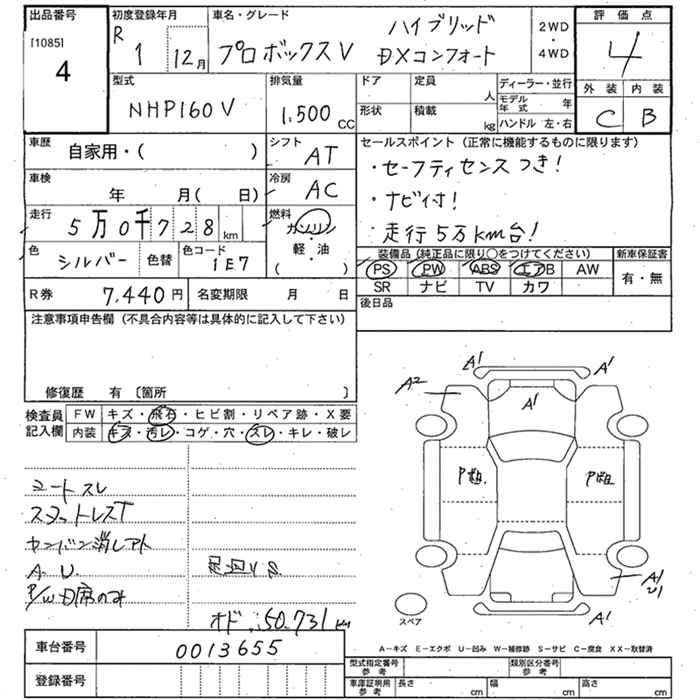 出品番号
[1085]
4
初度登録年月
R 1 12月
車名・グレード
ハイブリッド
プロボックスV DXコンフォート
2WD・4WD
評価点
4
外装 内装
C B
型式
NHP160V
排気量
1,500 CC
ドア 定員 人
形状 積載 kg
ディーラー・並行
モデル年式 年
ハンドル 左・右
車歴
自家用・( )
シフト
AT
車検
年 月( 日)
冷房
AC
走行
5万0千728km
燃料
ガソリン
・
軽・油
( )
色
シルバー
色替
色コード
1E7
セールスポイント(正常に機能するものに限ります)
・セーフティセンスつき!
・ナビ付!
・走行5万km台!
装備品(純正品に限り○をつけてください)
PS PW ABS エアB AW
SR ナビ TV カワ
新車保証書
有・無
R券 7,440円
名変期限 月 日
後日品
注意事項申告欄(不具合内容等は具体的に記入して下さい)
修復歴 有〔箇所 〕
検査員記入欄
FW キズ・飛石・ヒビ割・リペア跡・X要
内装 キズ・汚レ・コゲ・穴・スレ・キレ・破レ
シートスレ
スタットレスT
カンバン消しアト
A. U.
P/W D席のみ
足廻りS
オド:50.731km
A1
A1
A2
A1
P粗.
P粗
A1
U1
A1
スペア
A-キズ E-エクボ U-凹み W-補修跡 S-サビ C-腐食 XX-取替済
車台番号 0013655
登録番号
型式指定番号参考
類別区分番号参考
車庫証明用参考
長さ cm 幅 cm 高さ cm